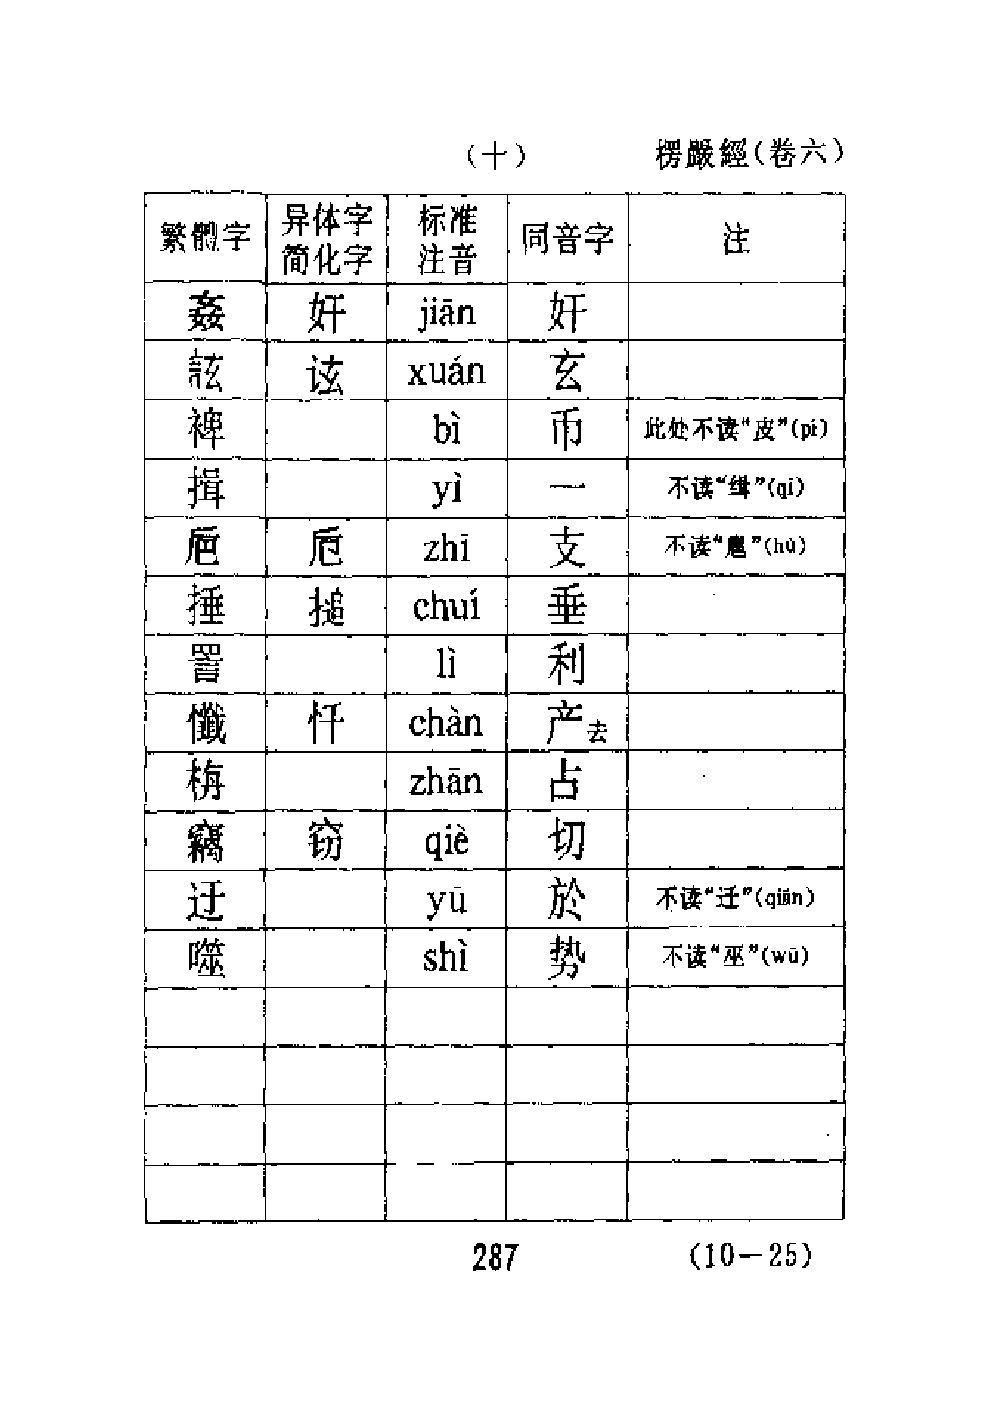 (十) 楞嚴經(卷六)
繁體字 异体字简化字 标准注音 同音字 注
姦 奸 jiān 奸
詃 𬣡 xuán 玄
裨 bì 币 此处不读“皮”(pí)
揖 yì 一 不读“缉”(qí)
巵 卮 zhī 支 不读“扈”(hù)
捶 搥 chuí 垂
詈 lì 利
懺 忏 chàn 产去
栴 zhān 占
竊 窃 qiè 切
迂 yū 於 不读“迁”(qiān)
噬 shì 势 不读“巫”(wū)
287 (10－25)